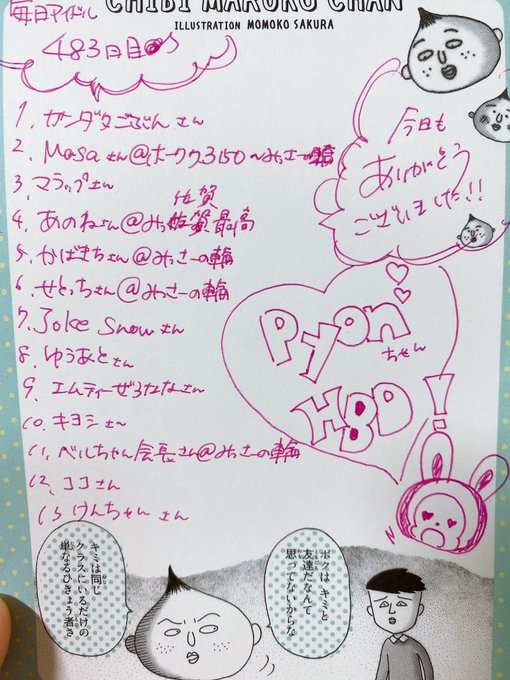 CHIBI MARUKO CHAN
ILLUSTRATION MOMOKO SAKURA
毎日アイドル
483日目
1. カンダタこぶんさん
2. Masaさん@ホークス3150～みっさーの輪
3. マラップさん
佐賀
4. あのねぇさん@みっ佐賀最高
5. かばきちさん@みっさーの輪
6. せとっちさん@みっさーの輪
7. Joke Snowさん
8. ゆうあとさん
9. エムティーぜろななさん
10. キヨシさん
11. ベルちゃん会長さん@みっさーの輪
12. ココさん
13 けんちゃんさん
今日も
ありがとう
ございました!!
Pyon
ちゃん
HBD!
ボクはキミと
友達だなんて
思ってないからな
キミは同じ
クラスにいるだけの
単なるひきょう者さ